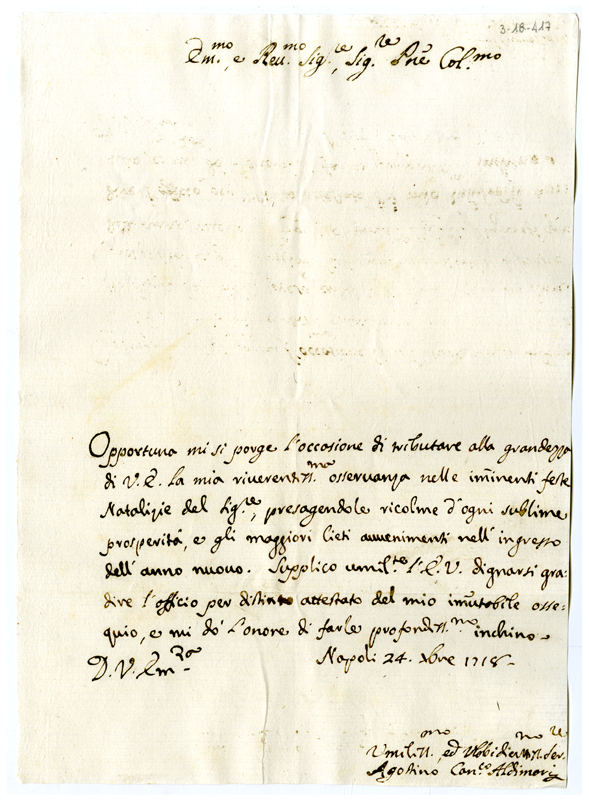 3-18-417
Em.mo, e Reu.mo Sig.re, Sig.re Pñe Col.mo
Opportuna mi si porge l'occasione di tributare alla grandezza
di V. E. la mia riverentiss.ma osservanza nelle im̃inenti feste
Natalizie del Sig.re, presagendole ricolme d'ogni sublime
prosperità, e gli maggiori lieti avvenimenti nell'ingresso
dell'anno nuovo. Supplico umil.te l'E. V. dignarsi gra:
dire l'officio per distinto attestato del mio im̃utabile osse:
quio, e mi dò l'onore di farle profondiss.mo inchino
D. V. Em.za Napoli 24. Xbre 1718
Umiliss.mo, ed Obbidientiss.mo ser.re
Agostino Can.co Aldimari